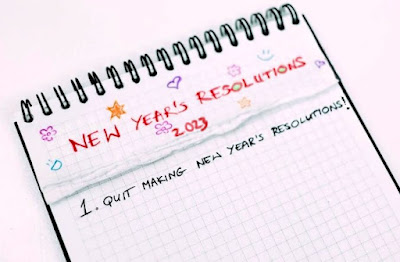 NEW YEAR'S RESOLUTIONS
2023
1. QUIT MAKING NEW YEAR'S RESOLUTIONS!